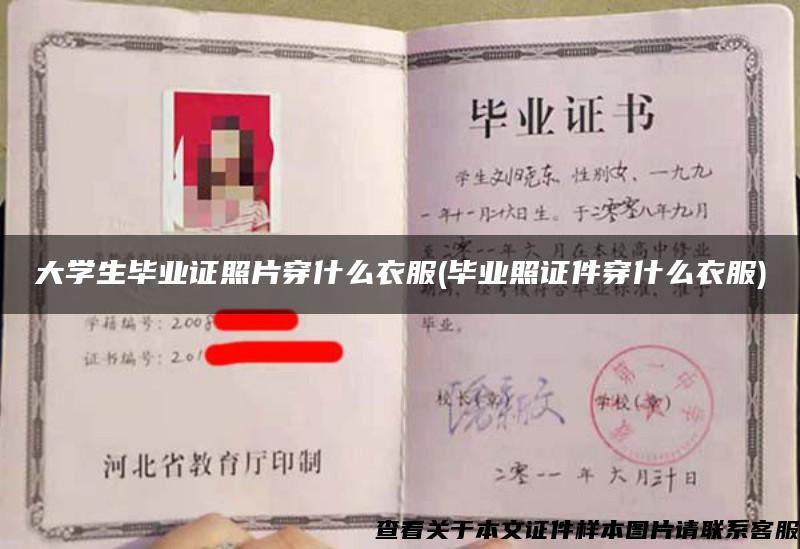 毕业证书
学生刘晓东 性别女、一九九
一年十一月十六日生。于二零零八年九月
至二零一一年六月在本校高中修业
期满，经考核符合毕业标准，准予
毕业。
大学生毕业证照片穿什么衣服(毕业照证件穿什么衣服)
学籍编号：2008
证书编号：201
校长(章)
学校(章)
第一中学
二零一一年六月三十日
河北省教育厅印制
查看关于本文证件样本图片请联系客服